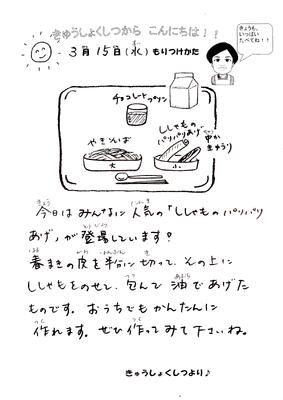 きゅうしょくしつから こんにちは!!
きょうも、
いっぱい
たべてね!!
3月15日(水)もりつけかた
チョコレートプリン
やきそば
ししゃもの
パリパリあげ
中か
きゅうり
大
小
今日はみんなに人気の「ししゃものパリパリ
あげ」が登場しています?
春まきの皮を半分に切って、その上に
ししゃもをのせて、包んで油であげた
ものです。おうちでもかんたんに
作れます。ぜひ作ってみて下さいね。
きゅうしょくしつより♪